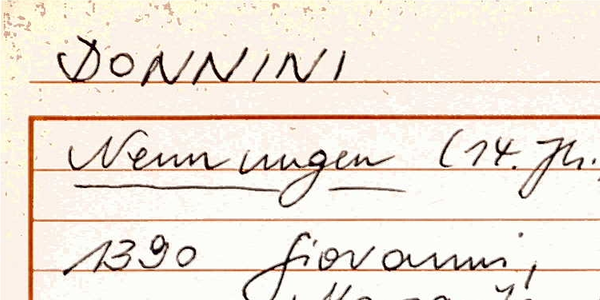 DONNINI
Nennungen (14. Jh.,
1390 Giovanni,